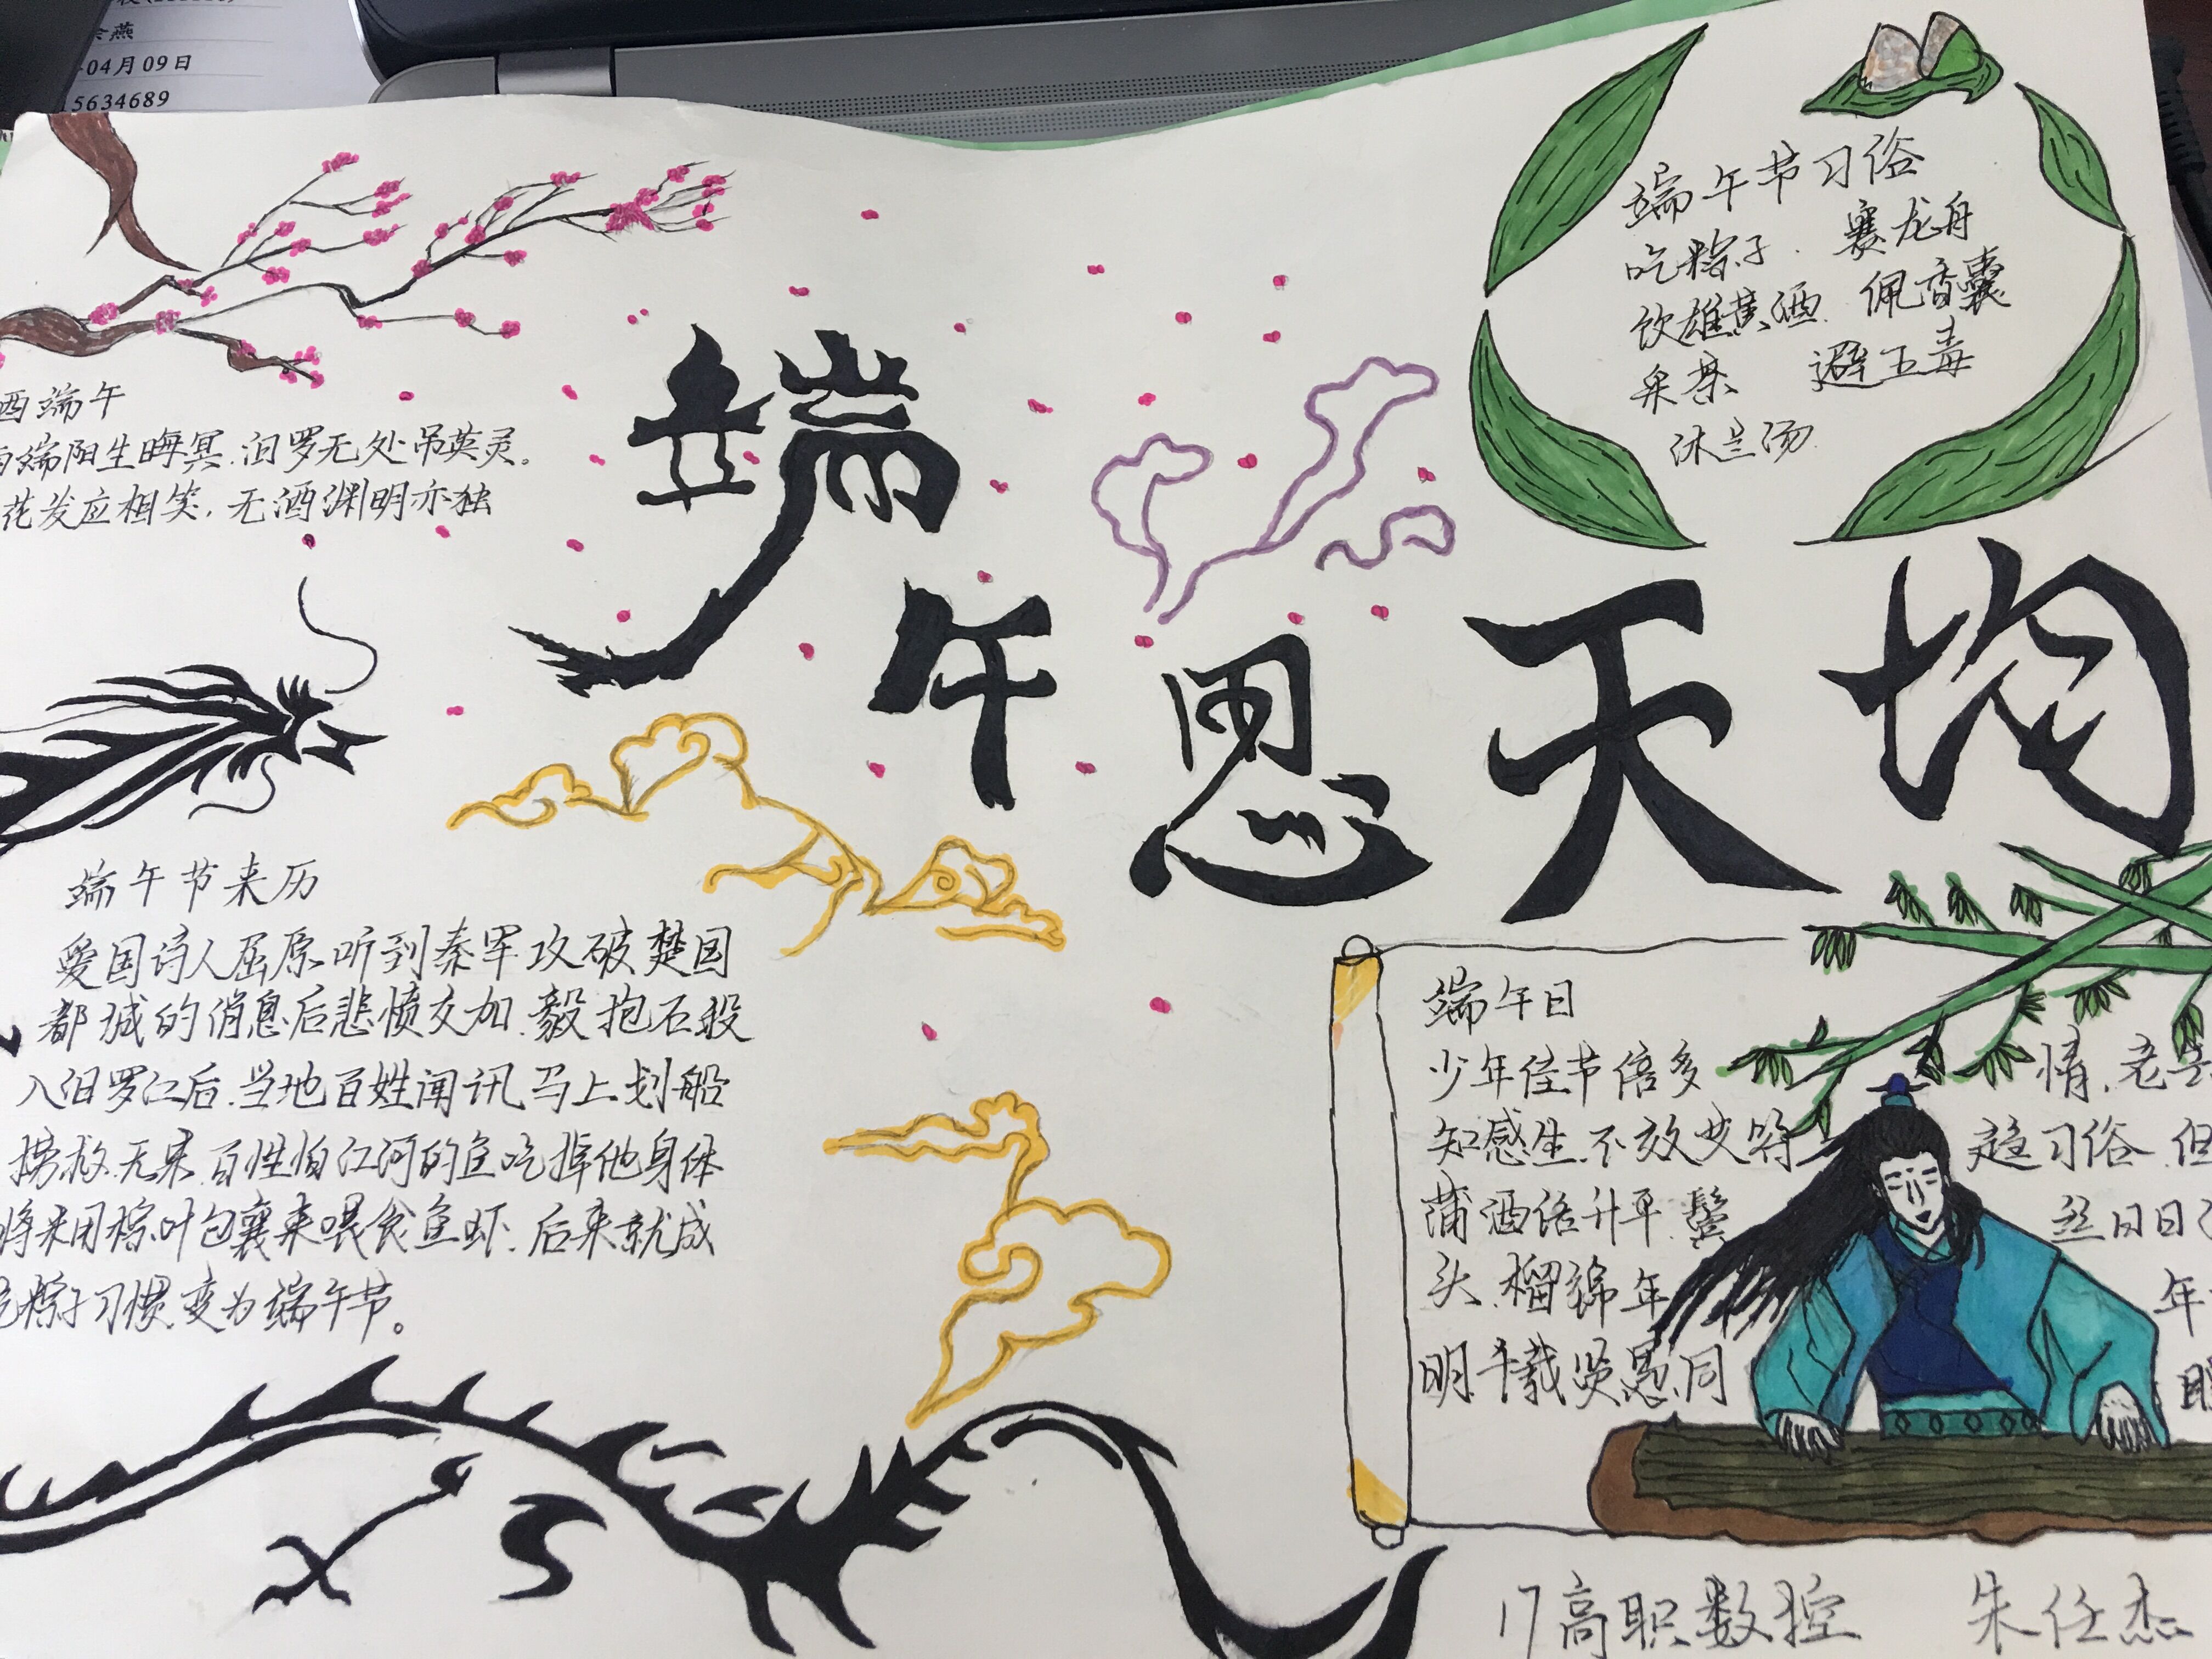 燕
04月09日
15634689
端午节习俗
吃粽子. 赛龙舟
饮雄黄酒 佩香囊
采茶 避五毒
沐兰汤
酉端午
端阳生晦冥.汨罗无处吊英灵。
花发应相笑,无酒渊明亦独
端午思天均
端午节来历
爱国诗人屈原听到秦军攻破楚国
都城的消息后悲愤交加.毅抱石投
入汨罗江后.当地百姓闻讯马上划船
捞救.无果.百姓怕江河的鱼吃掉他身体
将米用粽叶包裹来喂食鱼虾.后来就成
吃粽子习惯.变为端午节。
端午日
少年佳节倍多 情.老去
知感生.不效艾符 趋习俗.但
蒲酒话升平.鬓 丝日日
头.榴锦年 年
明.千载贤愚同
17高职数控 朱任杰